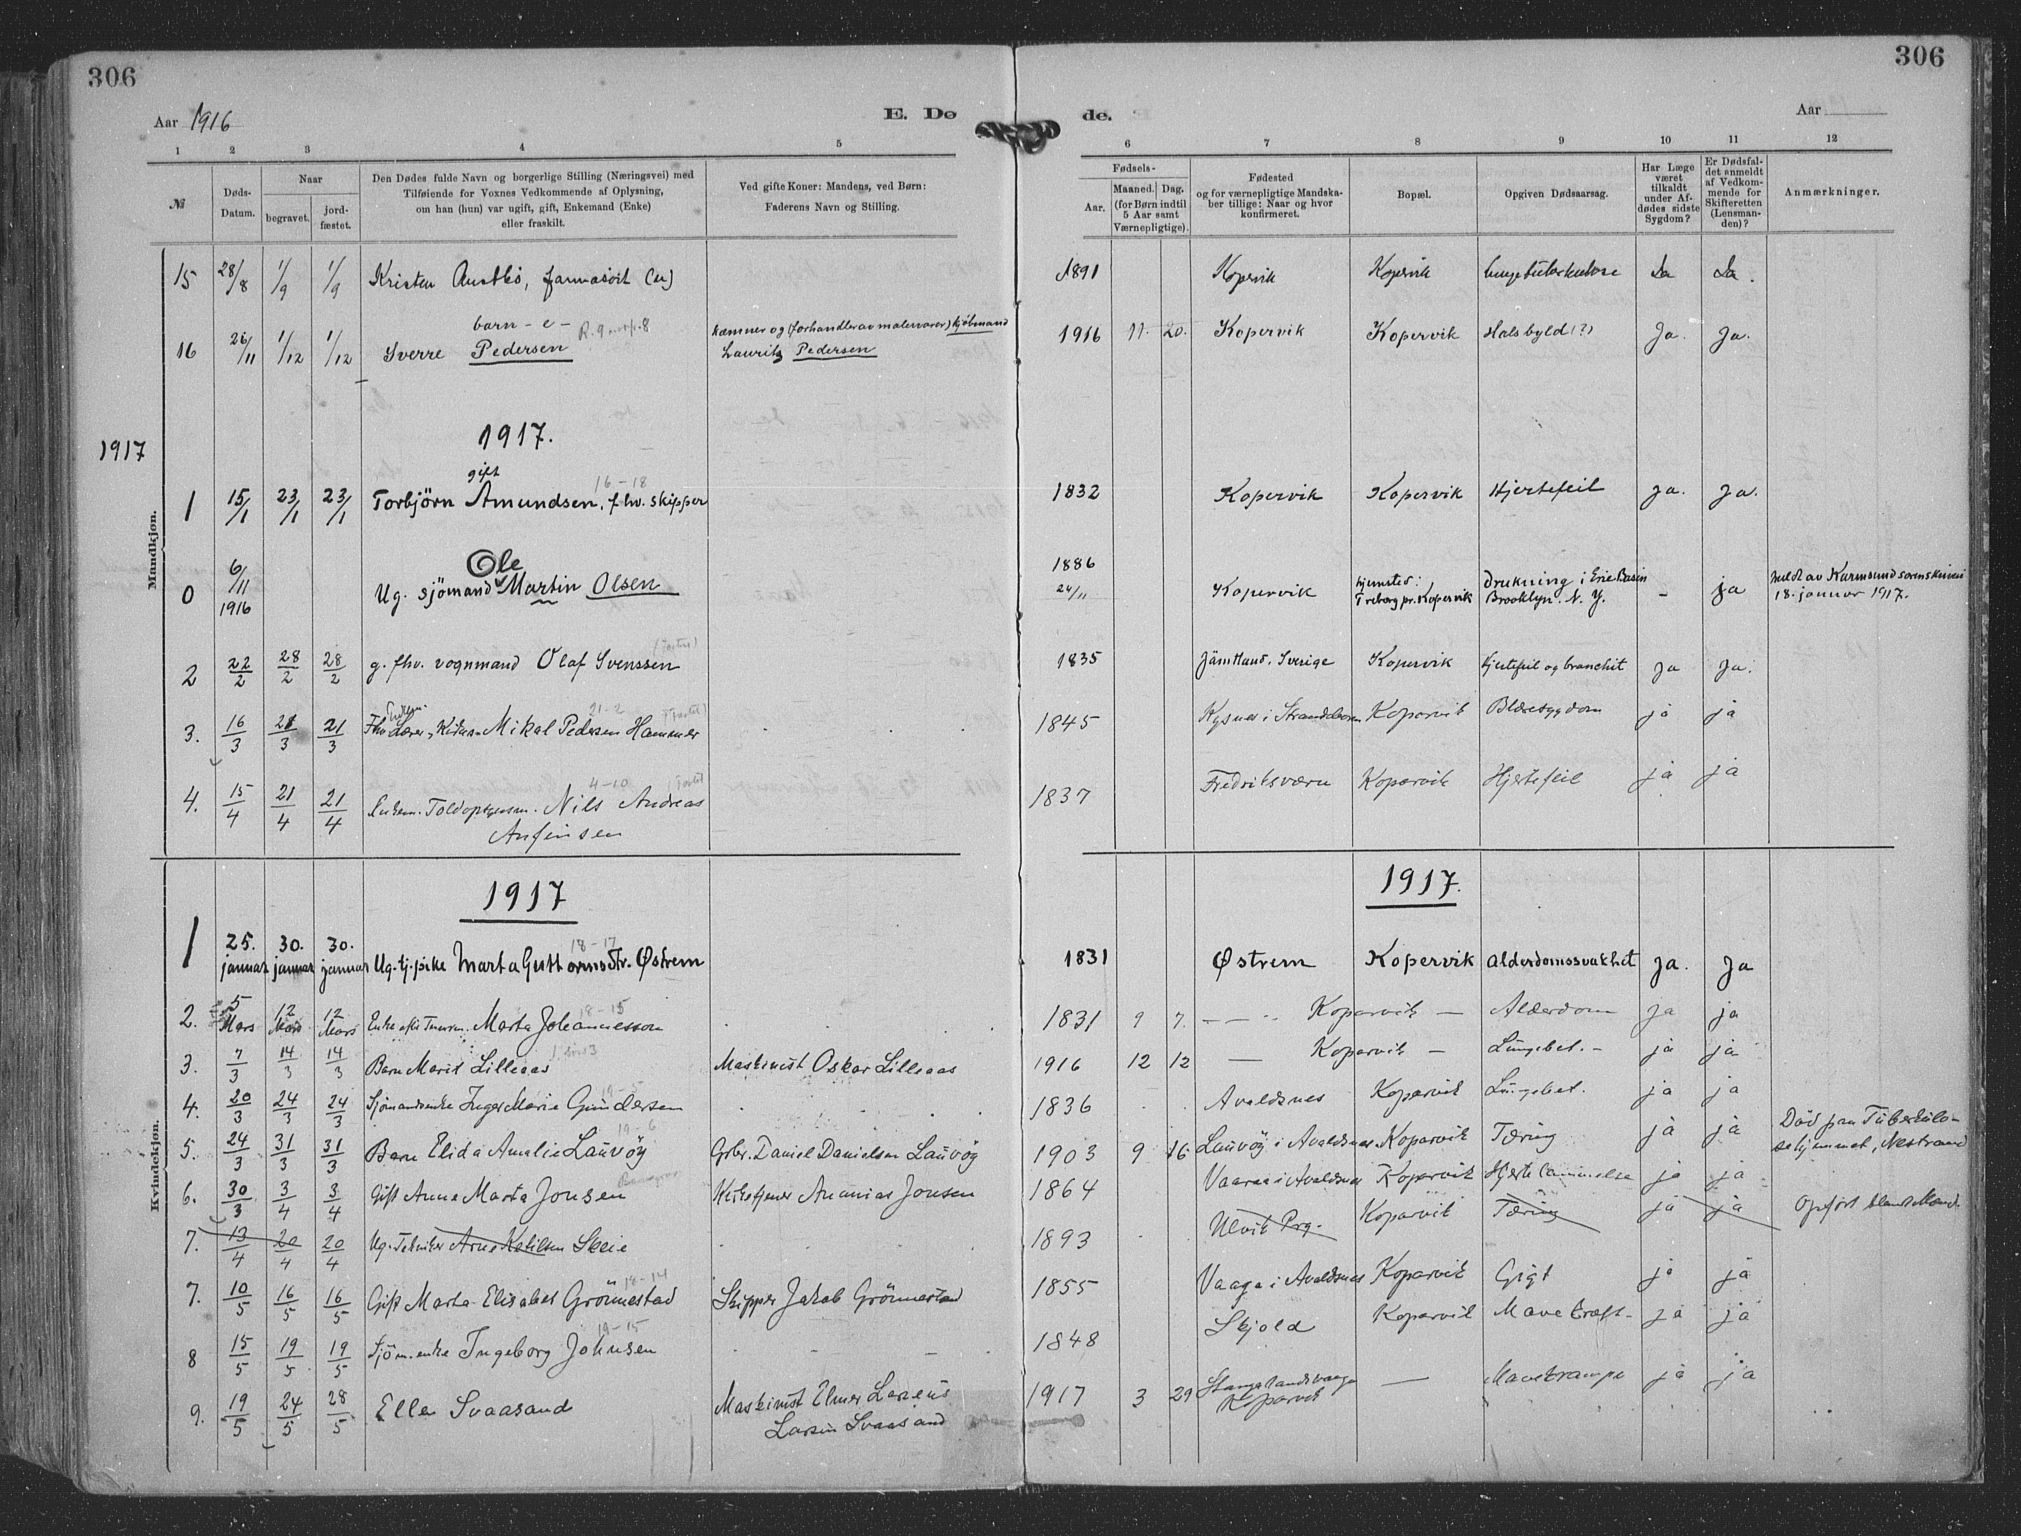 306
306
Aar 1916
E. Dø
de.
Aar
1 2 3 4 5
6 7 8 9 10 11 12
№
Døds-
Datum.
Naar
begravet.
jord-
fæstet.
Den Dødes fulde Navn og borgerlige Stilling (Næringsvei) med
Tilføiende for Voxnes Vedkommende af Oplysning,
om han (hun) var ugift, gift, Enkemand (Enke)
eller fraskilt.
Ved gifte Koner: Mandens, ved Børn:
Faderens Navn og Stilling.
Fødsels-
Aar.
Maaned. Dag.
(for Børn indtil
5 Aar samt
Værnepligtige).
Fødested
og for værnepligtige Mandska-
ber tillige: Naar og hvor
konfirmeret.
Bopæl.
Opgiven Dødsaarsag.
Har Læge
været
tilkaldt
under Af-
dødes sidste
Sygdom?
Er Dødsfal-
det anmeldt
af Vedkom-
mende for
Skifteretten
(Lensman-
den)?
Anmærkninger.
Mandkjøn.
15 28/8 1/9 1/9 Kristen Austbø, farmasøit (u) 1891 Kopervik Kopervik lungetuberkulose Ja Ja.
barn - e - kæmner og (forhandler av malervarer) kjøbmand
16 26/11 1/12 1/12 Sverre Pedersen Lauritz Pedersen 1916 11. 20. Kopervik Kopervik Halsbyld (?) Ja. Ja.
1917.
1917
gift
16-18
1 15/1 23/1 23/1 Torbjörn Amundsen, fhv. skipper 1832 Kopervik Kopervik Hjertefeil Ja. Ja.
Ole
0 6/11 1916 Ug. sjömand Martin Olsen 1886 24/11 Kopervik hjemsted: Treborg pr. Kopervik Drukning i Erie Basin Brooklyn. N. Y. - ja meldt av Karmsund sorenskriveri 18. januar 1917.
2 22/2 28/2 28/2 g. fhv. vognmand Olaf Svenssen 1835 Jämtland. Sverige Kopervik Hjertefeil og bronchit Ja Ja.
21-2
3. 16/3 21/3 21/3 Fhv. Lærer, Mikal Pedersen Hammer 1845 Koparvik Blæresygdom ja ja
4-10
4. 15/4 21/4 21/4 Enkem. Nils Andreas 1837 Fredriksværn Koparvik Hjertefeil ja ja
Anfinsen
1917
1917.
Kvindekjøn.
18-17
1 25. januar 30. januar 30. januar Ug. tj. pike Marta Guttormsdtr. Østrem 1831 Østrem Kopervik Alderdomssvakhet Ja. Ja
18-15
2. 5 Mars 12 Mars 12 Mars Enke efter Marta Johannesson 1831 9 7. Koparvik - Alderdom ja ja
3. 7/3 14/3 14/3 Barn Marit Lilleaas Maskinist Oskar Lilleaas 1916 12 12 - Koparvik - Lungebet. - ja ja
19-5
4. 20/3 24/3 24/3 Sjømandsenke Inger Marie Gundersen 1836 Avaldsnes Koparvik Lungebet. ja ja
19-6
5. 24/3 31/3 31/3 Barn Elida Amalie Lauvöy Grbr. Daniel Danielsen Lauvöy 1903 9 16 Lauvöy i Avaldsnes Koparvik Tæring ja ja Död paa Tuberkulo-
sehjemmet, Nestrand
6. 30/3 3/4 3/4 Gift Anne Marta Jonsen Kirketjener Ananias Jonsen 1864 i Avaldsnes Koparvik Hjertelammelse ja ja
7. 13/4 20/4 20/4 Ug. Tekniker Arne Ketilsen Skeie 1893 Ulvik Prg. Koparvik Tæring ja ja Opført blandt Mænd.
18-14
7. 10/5 16/5 16/5 Gift Marta Elisabet Grönnestad Skipper Jakob Grönnestad 1855 Vaaga i Avaldsnes Koparvik Gigt ja ja
19-15
8 15/5 19/5 19/5 Sjöm.enke Ingeborg Johnsen 1848 Skjold Koparvik Mavekræft - ja ja
9. 19/5 24/5 28/5 Ella Svaasand Maskinist Elmer Larsin Svaasand 1917 3 29 Stangelandsvaagen Koparvik - Mavekrampe ja ja